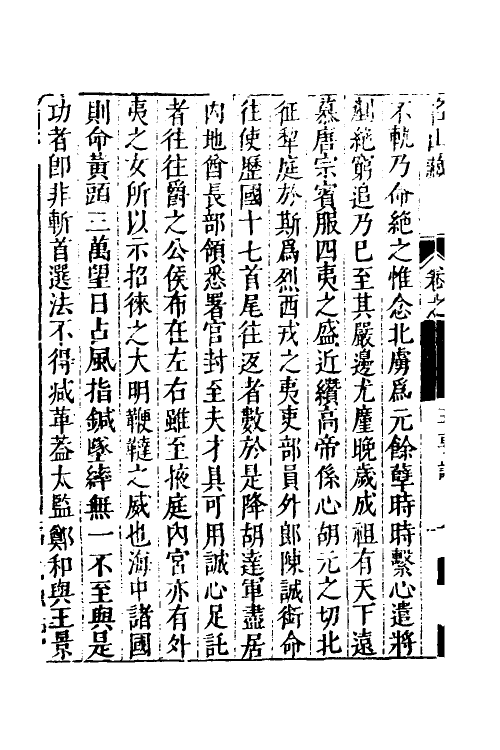 名山藏
卷之
王享記
一
不軌乃命絕之惟念北虜爲元餘孽時時繫心遣將
剗絕窮追乃巳至其嚴邊尤廑晚歲成祖有天下遠
慕唐宗賓服四夷之盛近纘高帝係心胡元之切北
征犁庭於斯爲烈西戎之夷吏部員外郎陳誠銜命
往使歷國十七首尾往返者數於是降胡達軍盡居
內地酋長部領悉署官封至夫才具可用誠心足託
者往往爵之公侯布在左右雖至掖庭內宮亦有外
夷之女所以示招徠之大明鞭韃之威也海中諸國
則命黃頭三萬望日占風指鍼墜繂無一不至與是
功者卽非斬首選法不得減革葢太監鄭和與王景